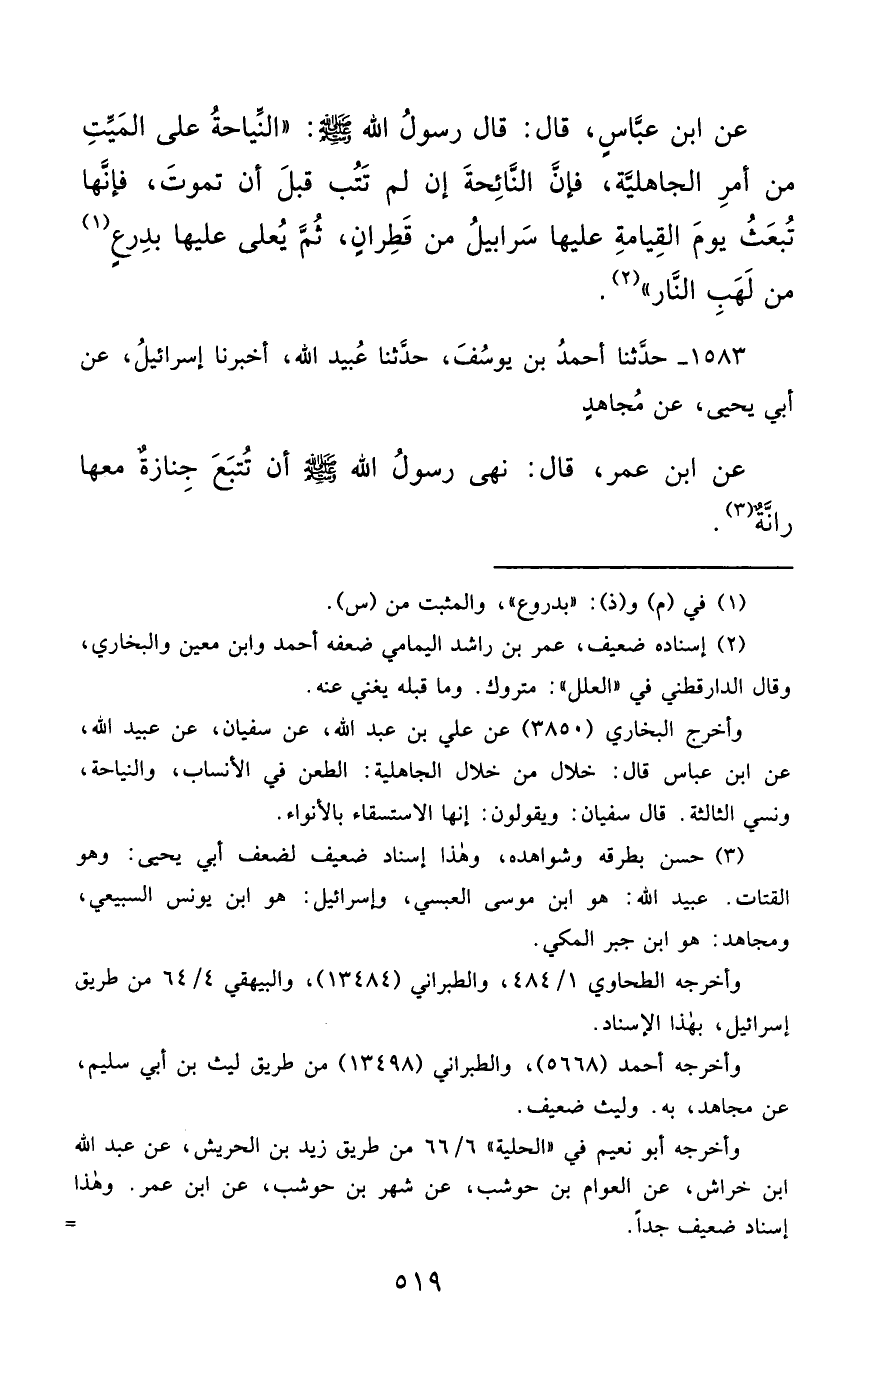 عن ابن عبَّاسٍ، قال: قال رسولُ الله ﷺ: «النِّياحةُ على المَيِّتِ
من أمرِ الجاهليَّة، فإنَّ النَّائِحةَ إن لم تَتُب قبلَ أن تموتَ، فإنَّها
تُبعَثُ يومَ القِيامةِ عليها سَرابيلُ من قَطِرانٍ، ثُمَّ يُعلى عليها بدِرعٍ(١)
من لَهَبِ النَّار»(٢).
١٥٨٣ـ حدَّثنا أحمدُ بن يوسُفَ، حدَّثنا عُبيد الله، أخبرنا إسرائيلُ، عن
أبي يحيى، عن مُجاهدٍ
عن ابن عمر، قال: نهى رسولُ الله ﷺ أن تُتبَعَ جِنازةٌ معها
رانَّةٌ(٣).
(١) في (م) و(ذ): «بدروع»، والمثبت من (س).
(٢) إسناده ضعيف، عمر بن راشد اليمامي ضعفه أحمد وابن معين والبخاري،
وقال الدارقطني في «العلل»: متروك. وما قبله يغني عنه.
وأخرج البخاري (٣٨٥٠) عن علي بن عبد الله، عن سفيان، عن عبيد الله،
عن ابن عباس قال: خلال من خلال الجاهلية: الطعن في الأنساب، والنياحة،
ونسي الثالثة. قال سفيان: ويقولون: إنها الاستسقاء بالأنواء.
(٣) حسن بطرقه وشواهده، وهٰذا إسناد ضعيف لضعف أبي يحيى: وهو
القتات. عبيد الله: هو ابن موسى العبسي، وإسرائيل: هو ابن يونس السبيعي،
ومجاهد: هو ابن جبر المكي.
وأخرجه الطحاوي ١/ ٤٨٤، والطبراني (١٣٤٨٤)، والبيهقي ٤/ ٦٤ من طريق
إسرائيل، بهٰذا الإسناد.
وأخرجه أحمد (٥٦٦٨)، والطبراني (١٣٤٩٨) من طريق ليث بن أبي سليم،
عن مجاهد، به. وليث ضعيف.
وأخرجه أبو نعيم في «الحلية» ٦/ ٦٦ من طريق زيد بن الحريش، عن عبد الله
ابن خراش، عن العوام بن حوشب، عن شهر بن حوشب، عن ابن عمر. وهٰذا
إسناد ضعيف جداً. =
٥١٩